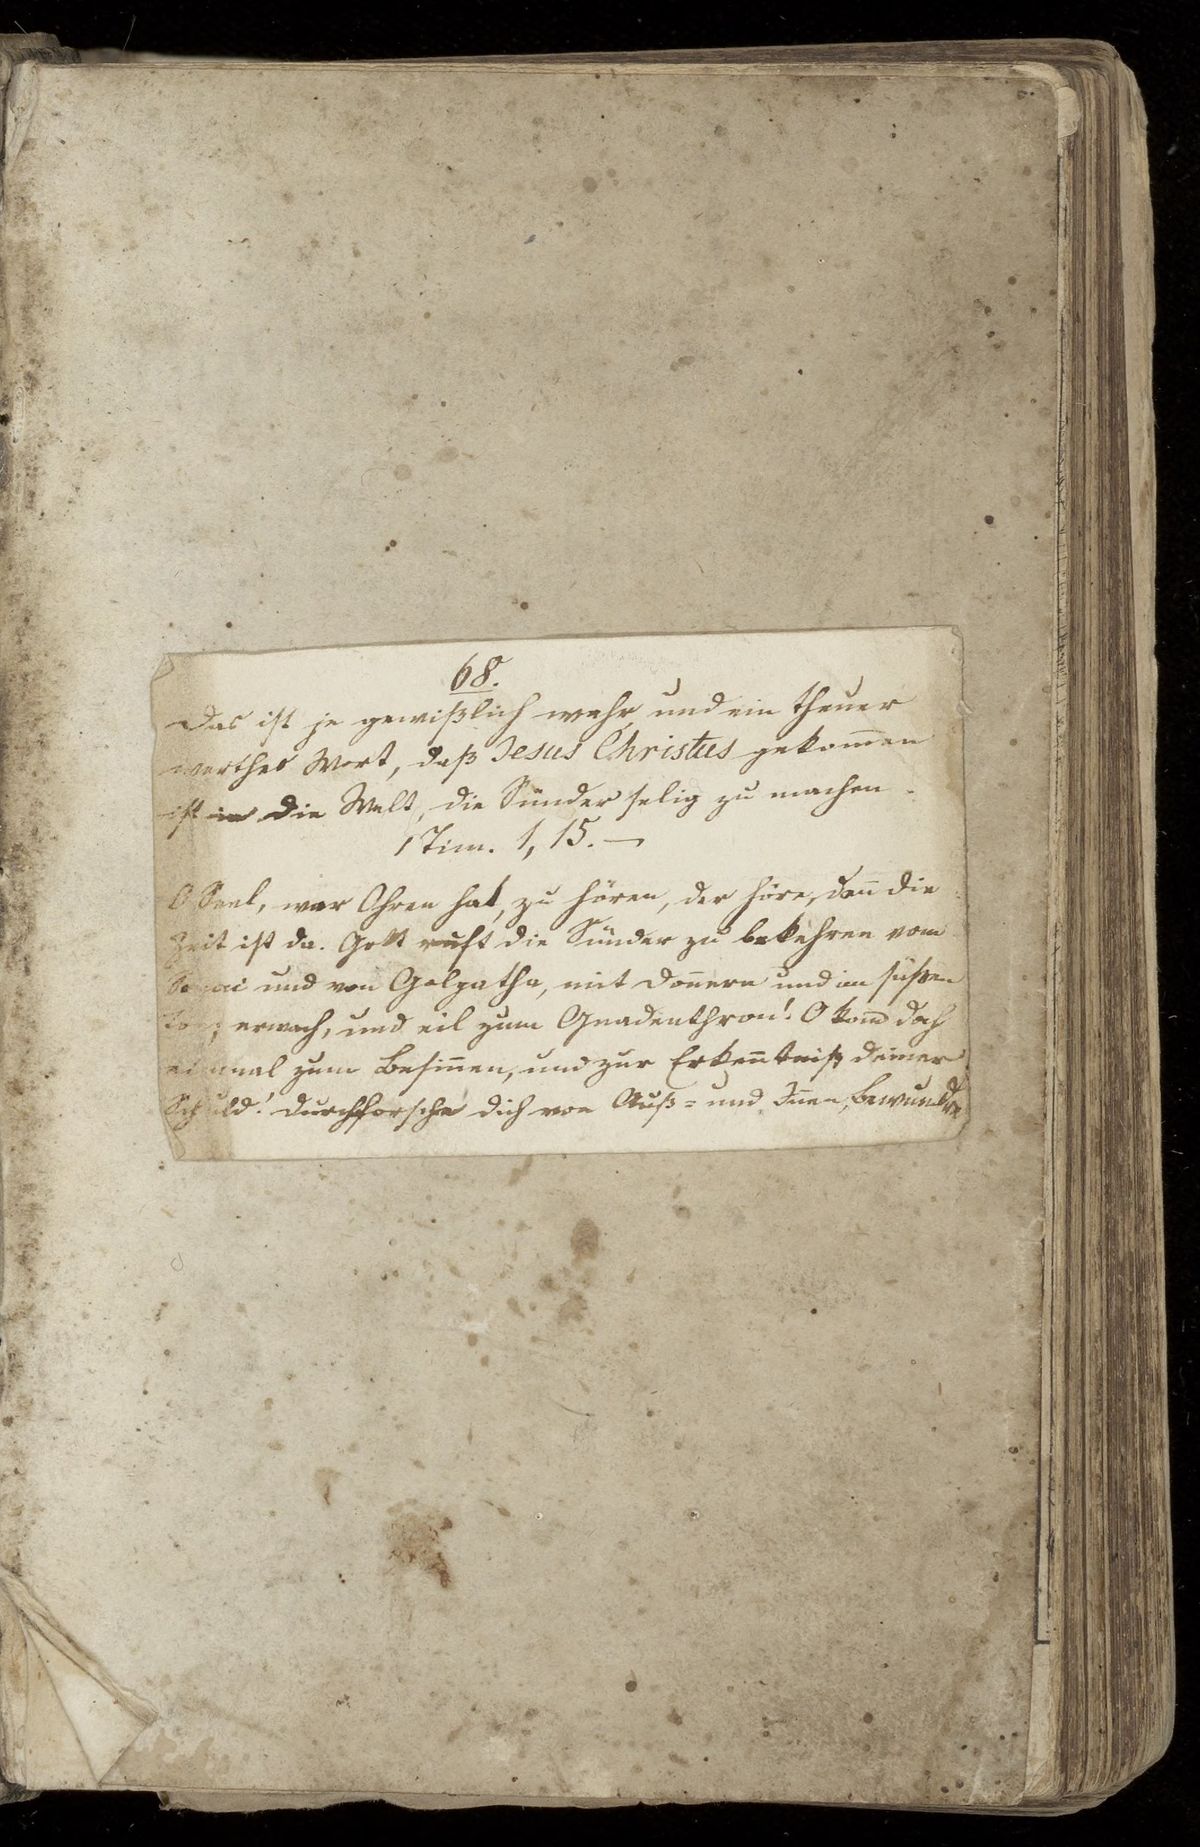 68.
Das ist je gewißlich wahr, und ein theuer
werthes Wort, daß Jesus Christus gekom̄en
ist in die Welt, die Sünder selig zu machen.
1 Tim. 1, 15. —
O Seel, wer Ohren hat, zu hören, der höre, den̄ die
Zeit ist da. Gott ruft die Sünder zu bekehren vom
Sinai und von Golgatha, mit Don̄ern und im süßen
Ton; erwach, und eil zum Gnadenthron! O kom̄ doch
einmal zum Besin̄en, und zur Erken̄tniß deiner
Schuld! durchforsche dich von Auß= und In̄en, bewundre